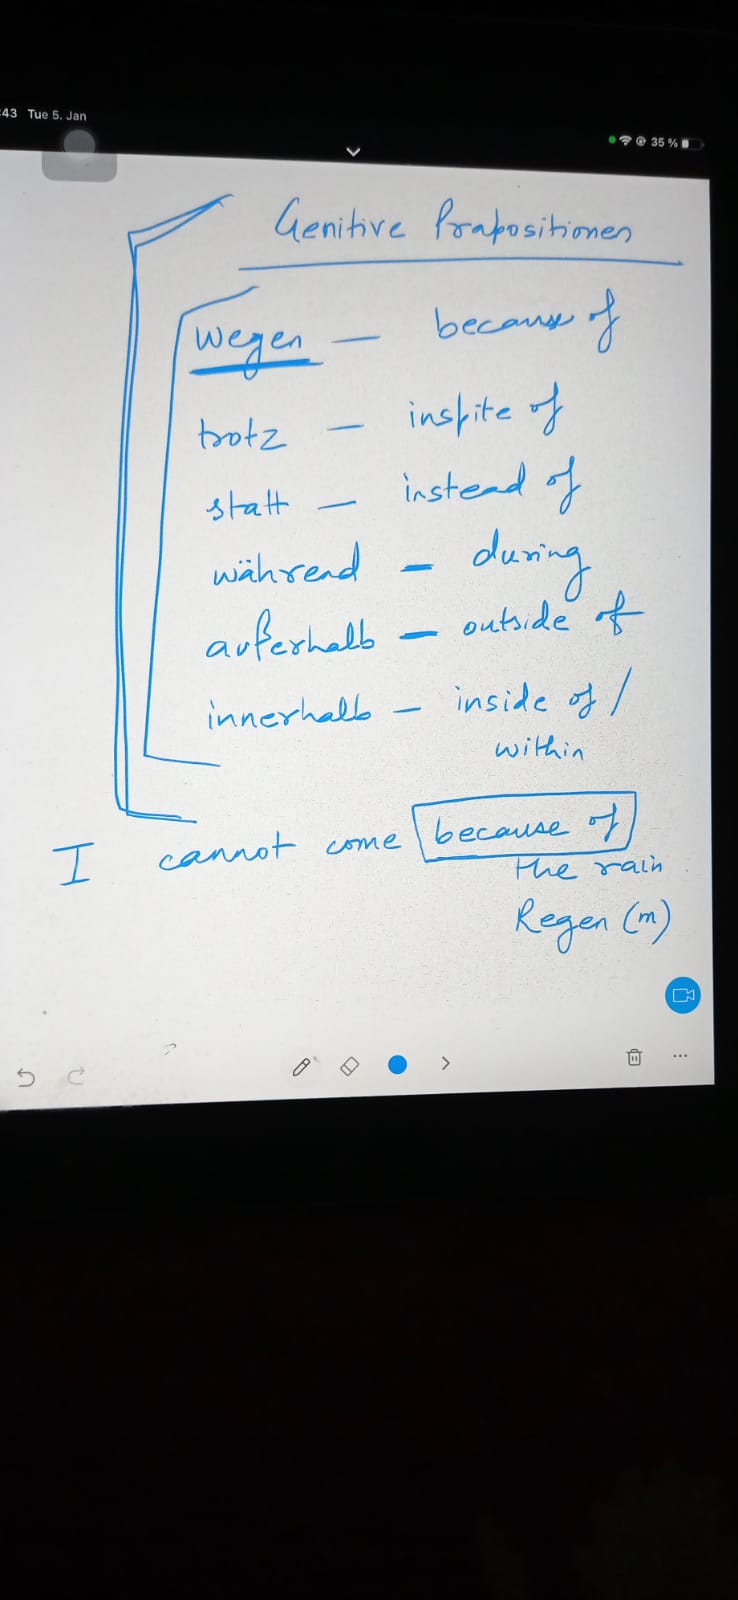 :43 Tue 5. Jan
35 %
Genitive Präpositionen
wegen — because of
trotz — inspite of
statt — instead of
während — during
außerhalb — outside of
innerhalb — inside of /
within
I cannot come because of
the rain
Regen (m)